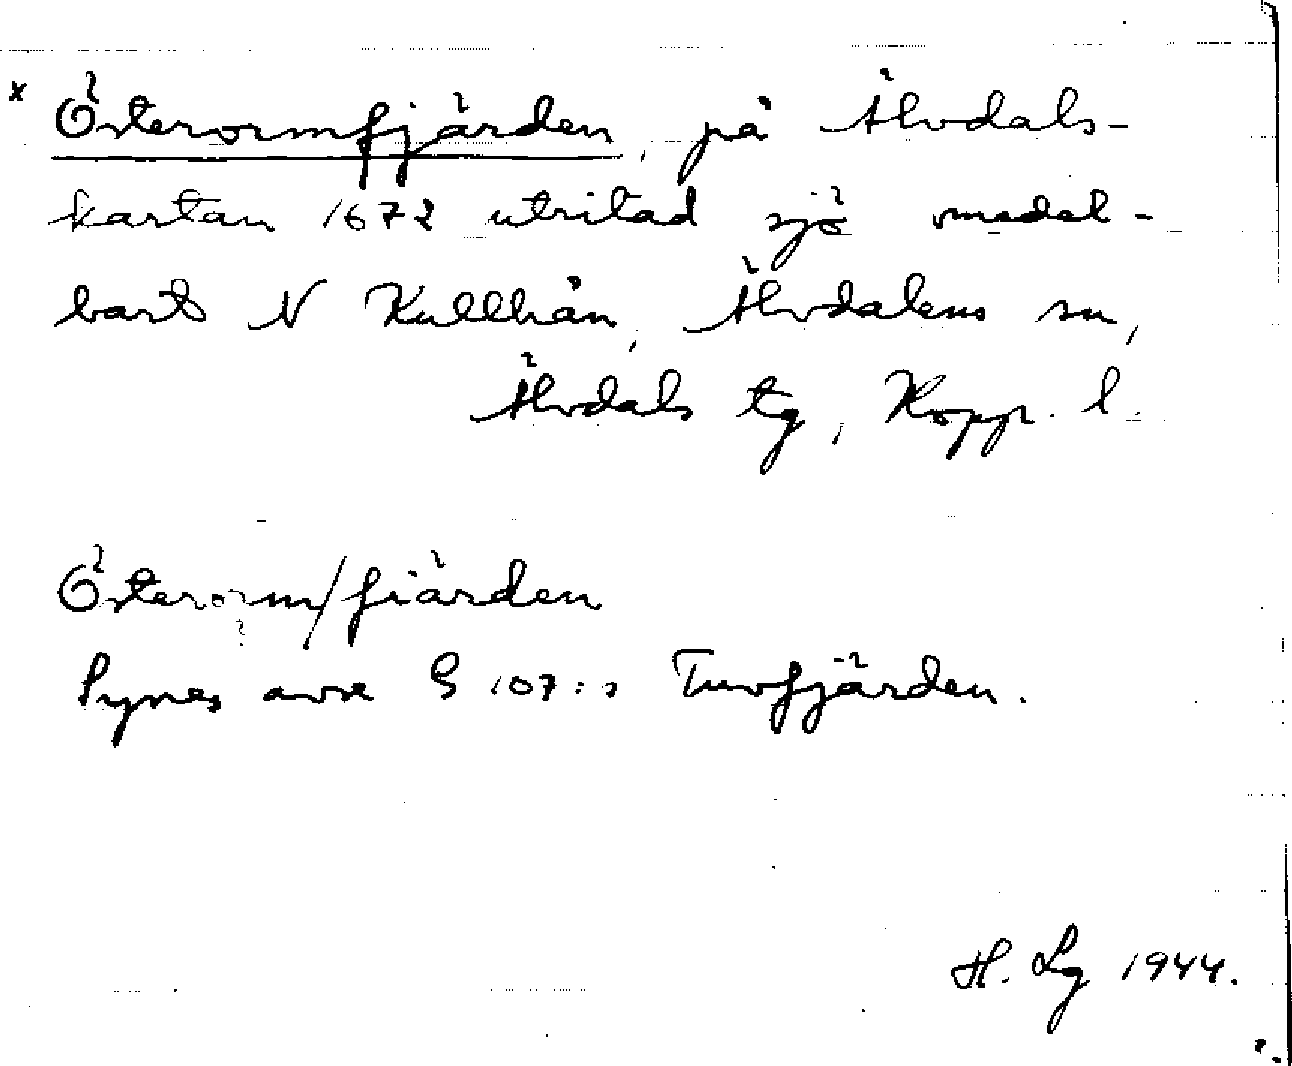 x Österormfjärden, på Älvdals-
kartan 1672 utritad sjö medel-
bart N Kullhån, Älvdalens sn,
Älvdals tg, Kopp. l.
Österorm/fiärden
Synes avse S 107:s Tuvfjärden.
H. Lg 1944.